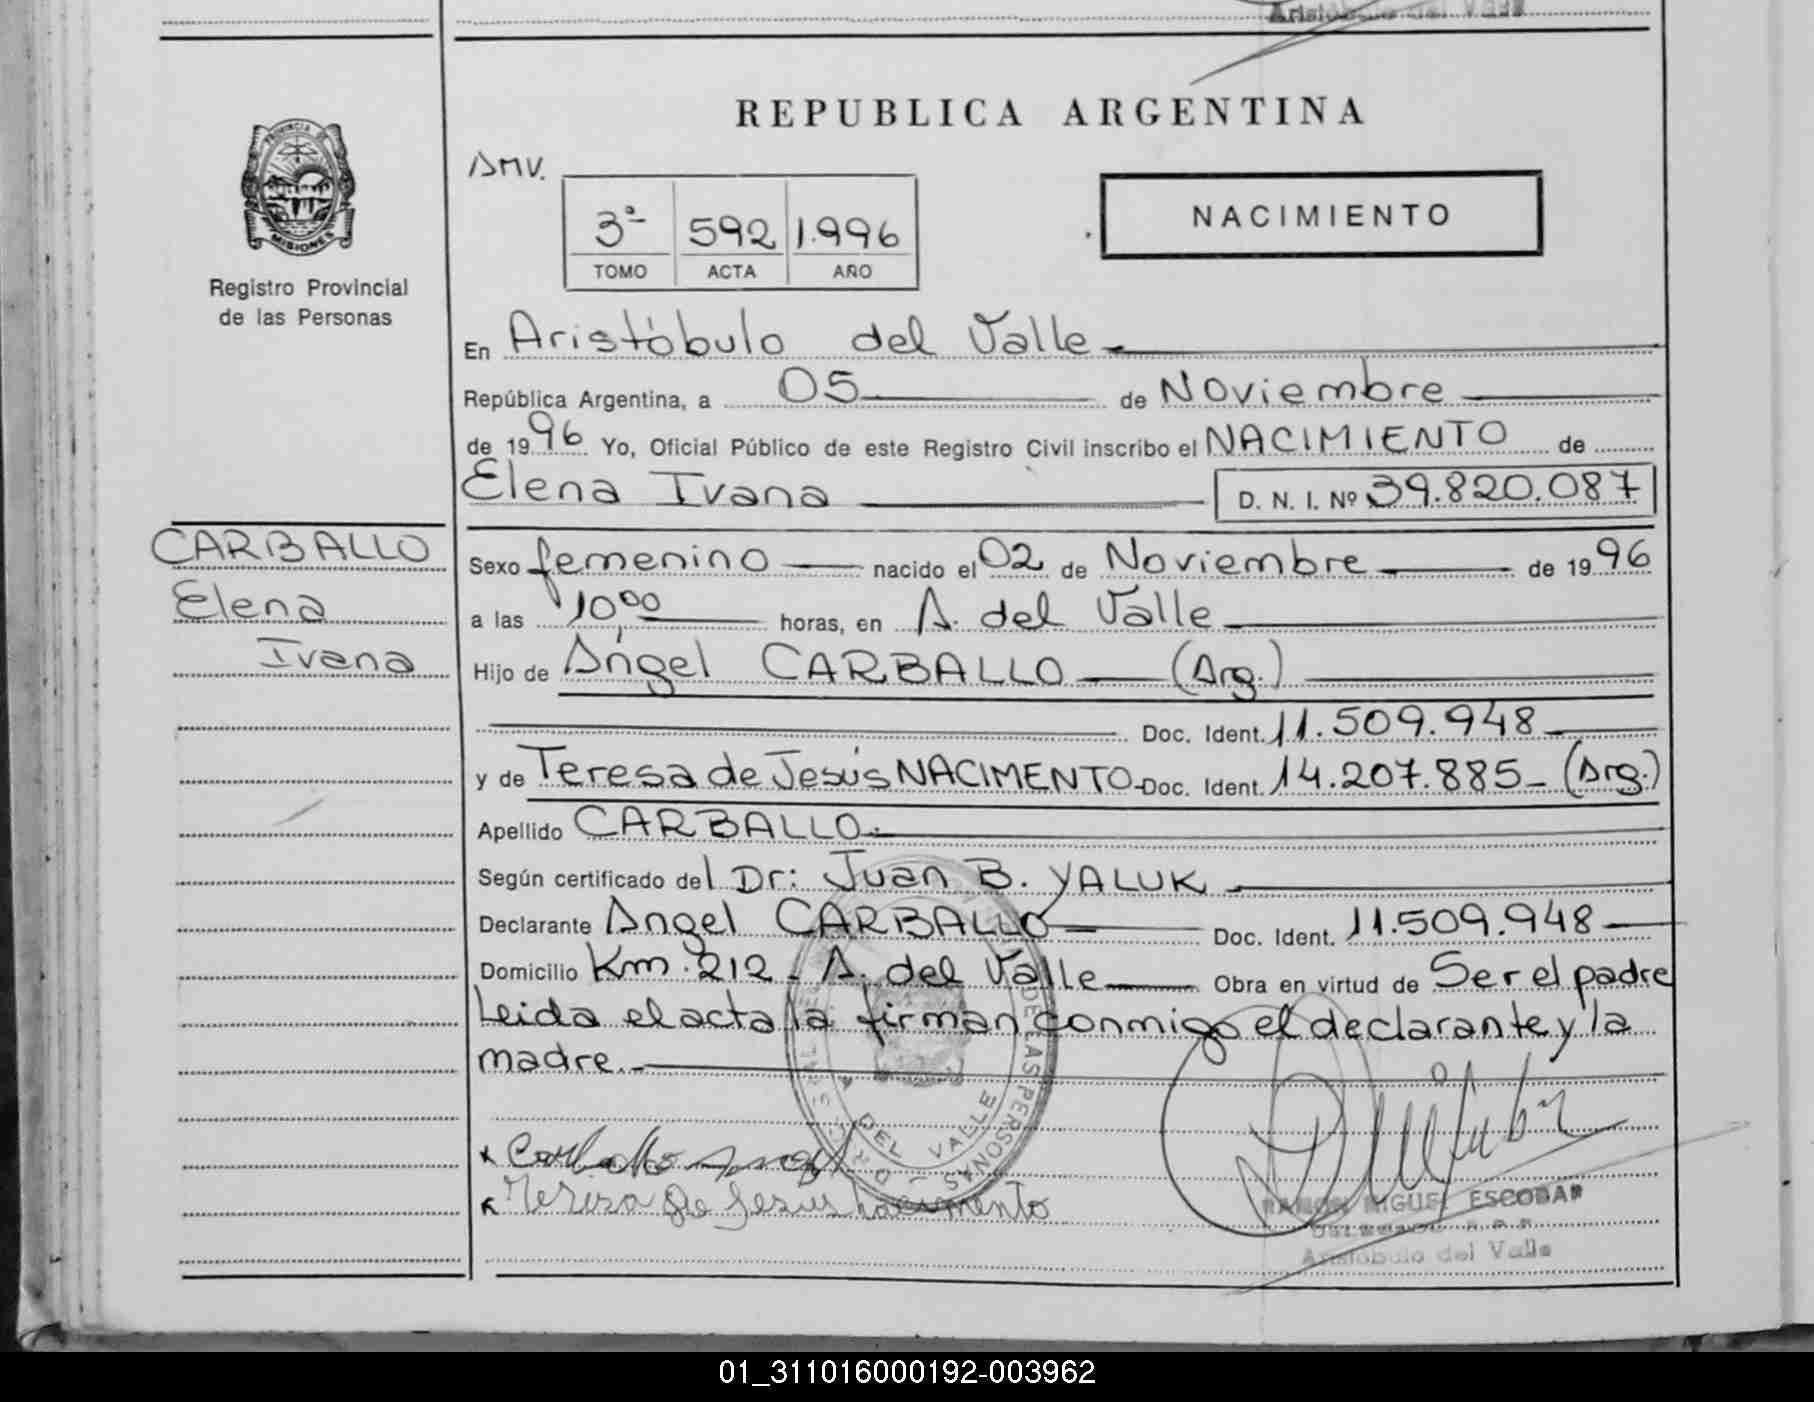 Aristóbulo del Valle
REPUBLICA ARGENTINA
PROVINCIA DE
MISIONES
Registro Provincial
de las Personas
AMV.
3º 592 1.996
TOMO ACTA AÑO
NACIMIENTO
En Aristóbulo del Valle
República Argentina, a 05 de Noviembre
de 1996 Yo, Oficial Público de este Registro Civil inscribo el NACIMIENTO de
Elena Ivana D. N. I. Nº 39.820.087
CARBALLO
Elena
Ivana
Sexo femenino nacido el 02 de Noviembre de 1996
a las 10,00 horas, en A. del Valle
Hijo de Angel CARBALLO (Arg.)
Doc. Ident. 11.509.948
y de Teresa de Jesús NACIMENTO Doc. Ident. 14.207.885 (Arg.)
Apellido CARBALLO.
Según certificado del Dr: Juan B. YALUK
Declarante Angel CARBALLO Doc. Ident. 11.509.948
Domicilio Km. 212 - A. del Valle Obra en virtud de Ser el padre
Leida el acta la firman conmigo el declarante y la
madre.
DE LAS PERSONAS
DEL VALLE
x Carballo Angel
x Teresa de Jesus Nacimento
RAMON MIGUEL ESCOBAR
DELEGADO R.P.P.
Aristóbulo del Valle
01_311016000192-003962